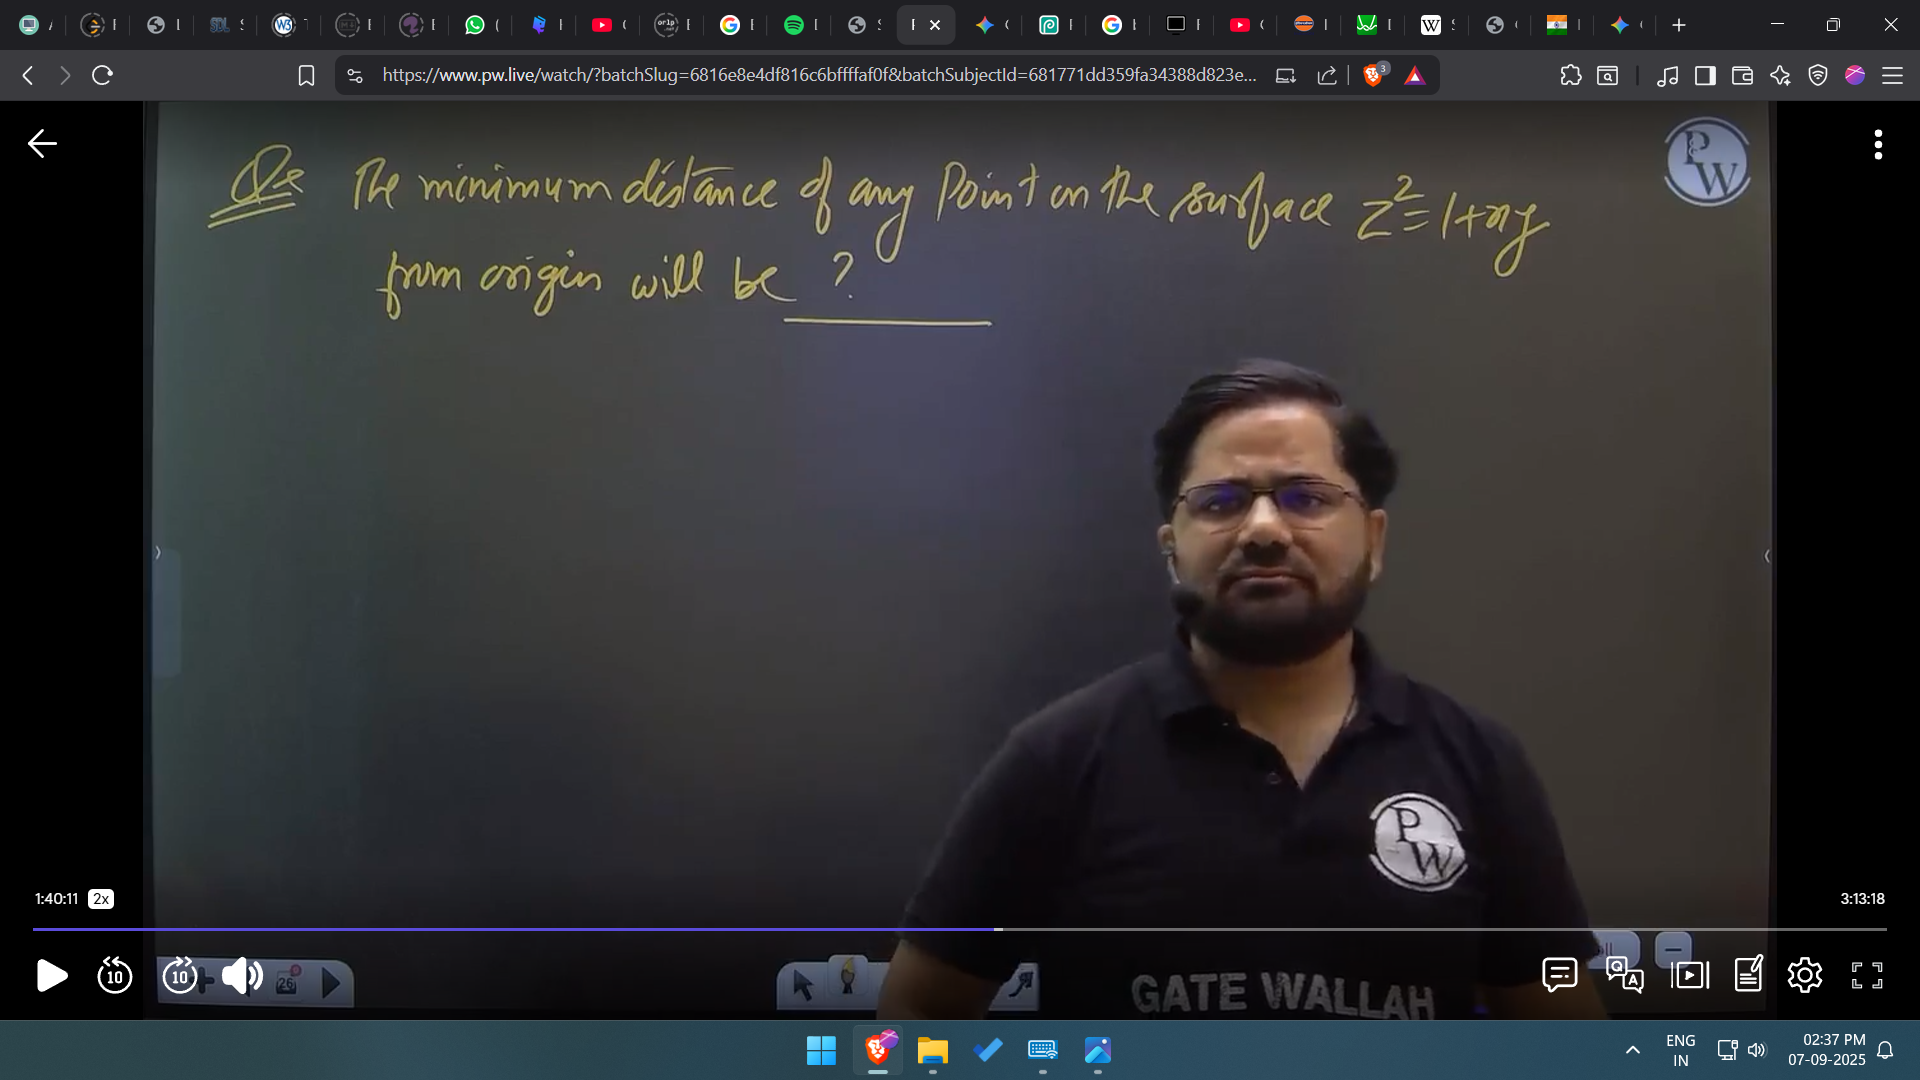 https://www.pw.live/watch/?batchSlug=6816e8e4df816c6bffffaf0f&batchSubjectId=681771dd359fa34388d823e...
3
PW
Qs The minimum distance of any Point on the surface z²=1+xy
from origin will be ?
PW
1:40:11 2x
3:13:18
10 10
26
GATE WALLAH
ENG
IN
02:37 PM
07-09-2025